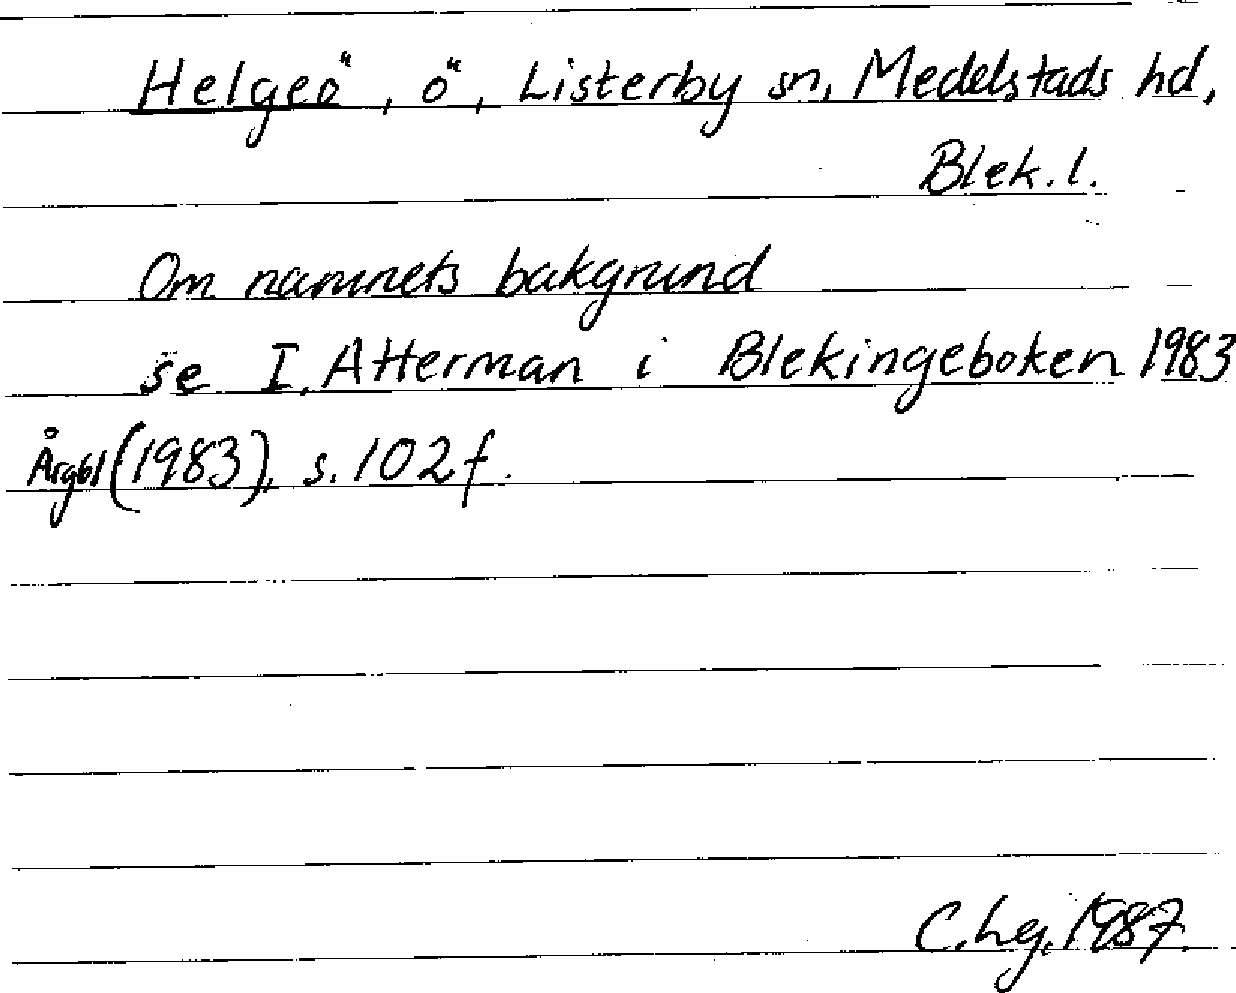 Helgeö, ö, Listerby sn, Medelstads hd,
Blek. l.
Om namnets bakgrund
se I. Atterman i Blekingeboken 1983
Årgbl (1983), s. 102 f.
C. Lg. 1987.